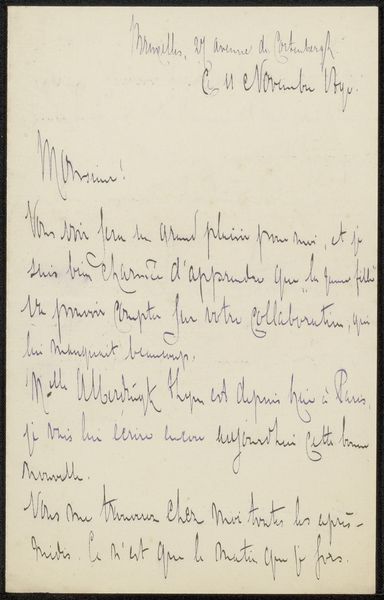 Bruxelles, 27 avenue de Cortenbergh.
Ce 11 Novembre 1890.
Monsieur!
Vous voir sera un grand plaisir pour moi, et je
suis bien charmée d'apprendre que "la jeune fille"
va pouvoir compter sur votre collaboration, qui
lui manquait beaucoup.
Melle Alberdingk Thijm est depuis hier à Paris,
je vais lui écrire encore aujourd'hui cette bonne
nouvelle.
Vous me trouverez chez moi toutes les après-
midis. Ce n'est que le matin que je sors.